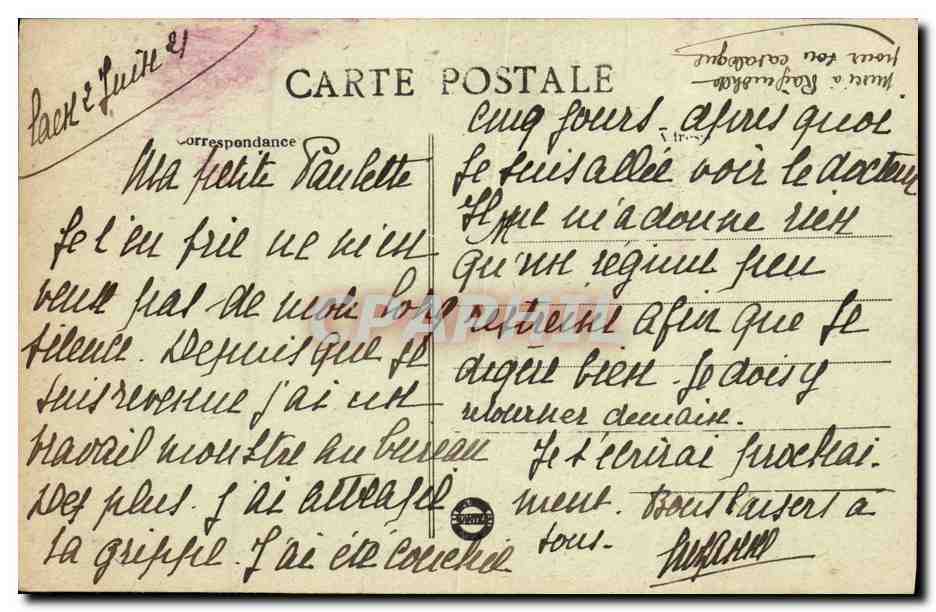 2 Juin 21
CARTE POSTALE
Correspondance
Ma petite Paulette
Je t'en prie ne m'en
veux pas de mon long
silence. Depuis que je
suis revenue j'ai un
travail monstre au bureau
De plus. j'ai attrapé
la grippe. J'ai été couchée
cinq jours. après quoi
je suis allée voir le docteur
Il ne m'a donné rien
qu'un régime peu
restreint afin que je
digère bien. Je dois y
retourner demain.
Je t'écrirai prochai-
nement. Bons baisers à
tous.
Suzanne
merci à
pour son catalogue
CPARHIL